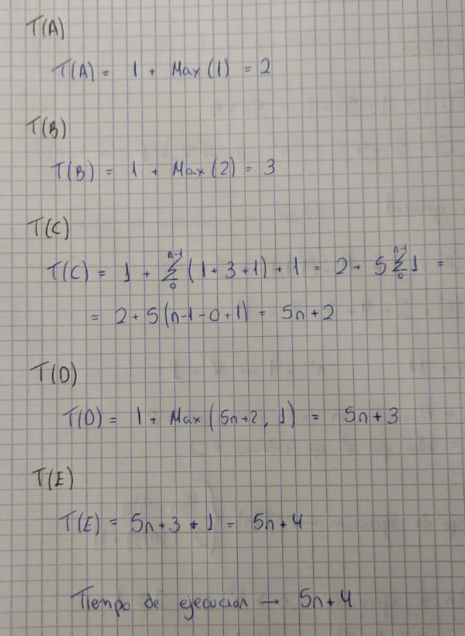 T(A)
T(A) = 1 + Max(1) = 2
T(B)
T(B) = 1 + Max(2) = 3
T(C)
T(C) = 1 + ∑₀ⁿ⁻¹ (1+3+1) + 1 = 2 + 5 ∑₀ⁿ⁻¹ 1 =
= 2 + 5(n-1-0+1) = 5n+2
T(D)
T(D) = 1 + Max(5n+2, 1) = 5n+3
T(E)
T(E) = 5n+3 + 1 = 5n+4
Tiempo de ejecución → 5n+4